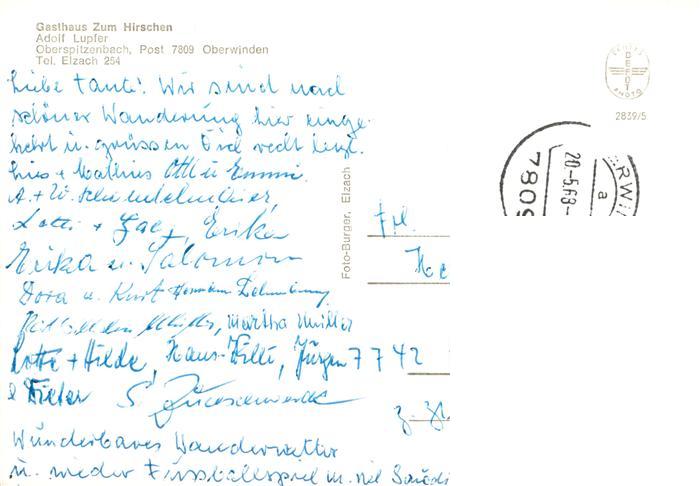 Gasthaus Zum Hirschen
Adolf Lupfer
Oberspitzenbach, Post 7809 Oberwinden
Tel. Elzach 254
Liebe Tante! Wir sind nach
schöner Wanderung hier einge-
kehrt u. grüssen Dich recht herzl.
Otto u Emmi.
A. + W.
Lotti + Erika
Erika u. Salomon
Dora u. Kurt Hermann
Martha Müller
Lotte + Hilde, Hans-Willi, Jürgen
Dieter S.
Wunderbares Wanderwetter
u. wieder Fussballspiel m. viel
Foto-Burger, Elzach
Frl.
7742
z. Zt.
2839/5
20-5.68-
7809
a